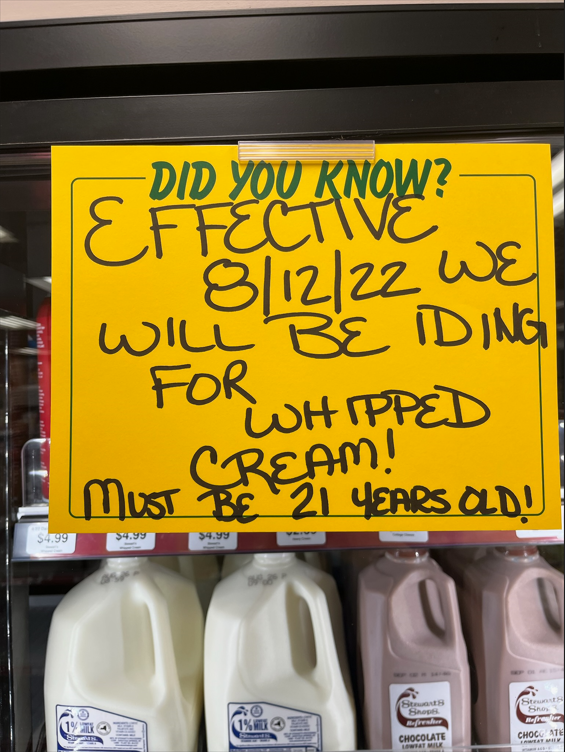 DID YOU KNOW?
EFFECTIVE
8/12/22 WE
WILL BE IDING
FOR
WHIPPED
CREAM!
MUST BE 21 YEARS OLD!
$4.99
$4.99
$4.99
1%
MILK
Stewart's
1%
MILK
Stewart's
Stewart's
Shops
Refresher
CHOCOLATE
LOWFAT MILK
Stewart's
Shops
Refresher
CHOCOLATE
LOWFAT MILK